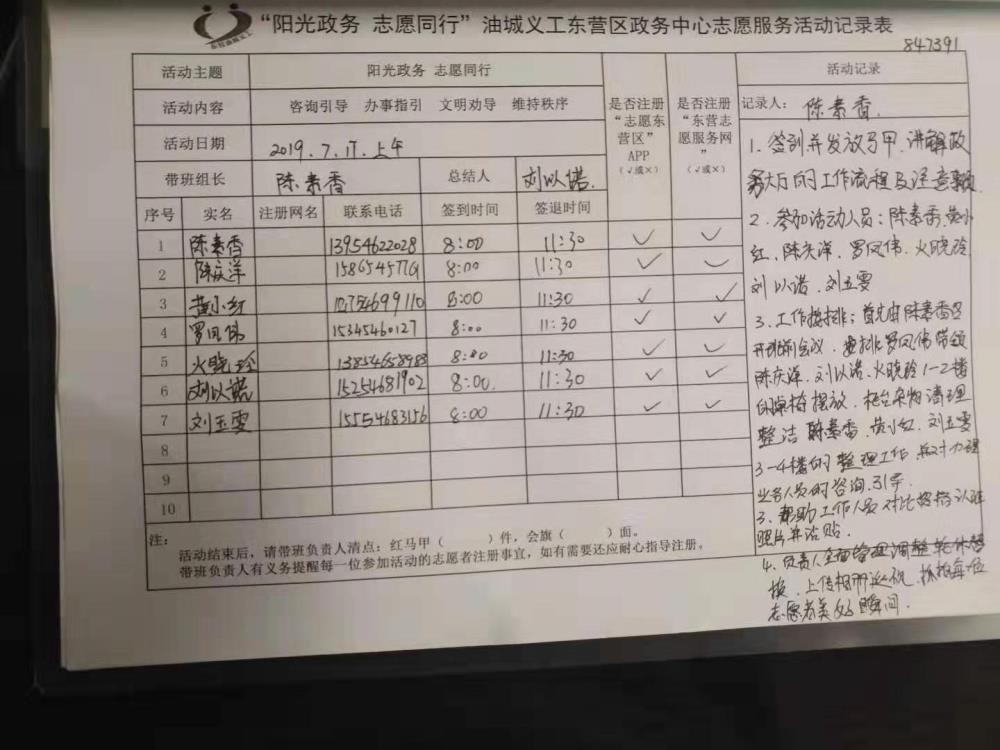 “阳光政务 志愿同行”油城义工东营区政务中心志愿服务活动记录表
847391
活动主题 阳光政务 志愿同行
活动内容 咨询引导 办事指引 文明劝导 维持秩序
活动日期 2019.7.17.上午
带班组长 陈素香 总结人 刘以诺.
是否注册“志愿东营区”APP（√或×）
是否注册“东营志愿服务网”（√或×）
序号 实名 注册网名 联系电话 签到时间 签退时间
1 陈素香 13954622028 8:00 11:30 √ √
2 陈庆洋 8:00 11:30 √ √
3 黄小红 8:00 11:30 √ √
4 罗凤伟 15345460127 8:00 11:30 √ √
5 火晓玲 8:00 11:30 √ √
6 刘以诺 15254681902 8:00. 11:30 √ √
7 刘玉雯 15554683156 8:00 11:30 √ √
8
9
10
注：
活动结束后，请带班负责人清点：红马甲（ ）件，会旗（ ）面。
带班负责人有义务提醒每一位参加活动的志愿者注册事宜，如有需要还应耐心指导注册。
活动记录
记录人： 陈素香.
1. 签到并发放马甲.讲解政
务大厅的工作流程及注意事项
2. 参加活动人员：陈素香.黄小
红、陈庆洋、罗凤伟、火晓玲
刘以诺、刘玉雯
3. 工作按排：首先由陈素香召
开班前会议、安排罗凤伟带领
陈庆洋、刘以诺、火晓玲1-2楼
的桌椅摆放、柜台杂物清理
整洁 陈素香、黄小红、刘玉雯
3-4楼的整理工作、应对办理
业务人员的咨询.引导.
3. 帮助工作人员对比
照片并沾贴.
4. 负责人全面管理调整轮休替
换、上传相册、抓拍每一位
志愿者美好瞬间.